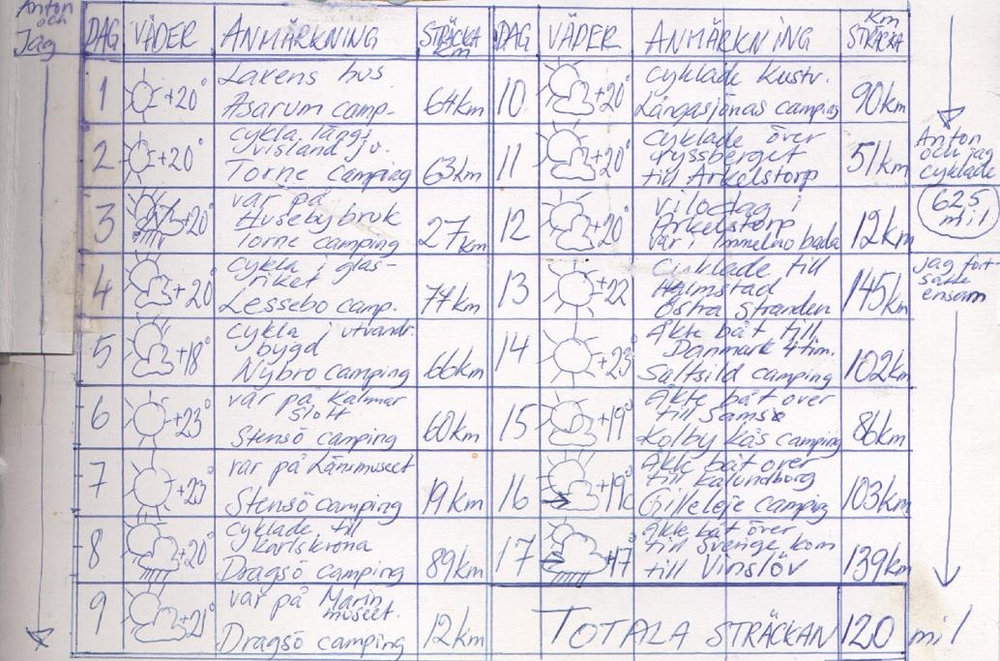 Anton
och
Jag
DAG VÄDER ANMÄRKNING STRÄCKA Km
1 +20° Laxens hus
Asarum camp- 64km
2 +20° cykla längs
Torne camping 63km
3 +20° var på
Husebybruk
Torne camping 27km
4 +20° cykla i glas-
riket
Lessebo camp. 74km
5 +18° cykla i utvandr.
bygd
Nybro camping 66km
6 +23° var på Kalmar
Slott
Stensö camping 60km
7 +23° var på Länsmuseet
Stensö camping 19km
8 +20° cyklade till
Karlskrona
Dragsö camping 89km
9 +21° var på Marin
museet.
Dragsö camping 12km
DAG VÄDER ANMÄRKNING Km STRÄCKA
10 +20° cyklade Kustv.
Långasjönäs camping 90km
11 +20° cyklade över
ryssberget
till Arkelstorp 51km
12 +20° vilodag i
Arkelstorp
var i Immelns bada 12km
13 +22° cyklade till
Halmstad
Östra Stranden 145km
14 +23° Åkte båt till
Danmark 4 tim.
Saltsild camping 102km
15 +19° Åkte båt over
till Samsø
Kolby Kås camping 86km
16 +19° Åkte båt over
till Kalundborg
Gilleleje camping 103km
17 +17° Åkte båt över
till Sverige, kom
till Vinslöv 139km
TOTALA STRÄCKAN 120 mil
Anton
och jag
cyklade
62,5
mil
jag fort-
satte
ensam